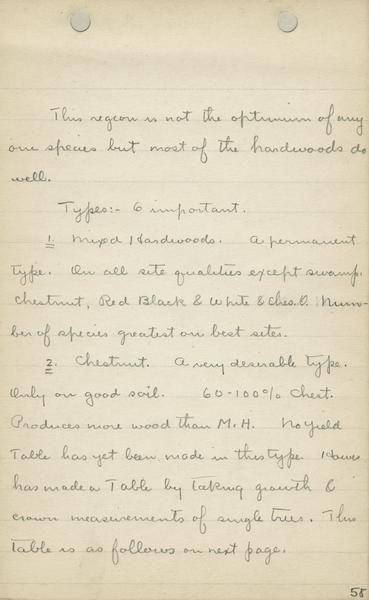 This region is not the optimum of any
one species but most of the hardwoods do
well.
Types:- 6 important.
1. Mixed Hardwoods. A permanent
type. On all site qualities except swamp.
Chestnut, Red Black & White & Ches. O. Num-
ber of species greatest on best sites.
2. Chestnut. A very desirable type.
Only on good soil. 60-100% Chest.
Produces more wood than M.H. No Yield
Table has yet been made in this type. Hawes
has made a Table by taking growth &
crown measurements of single trees. This
Table is as follows on next page.
58